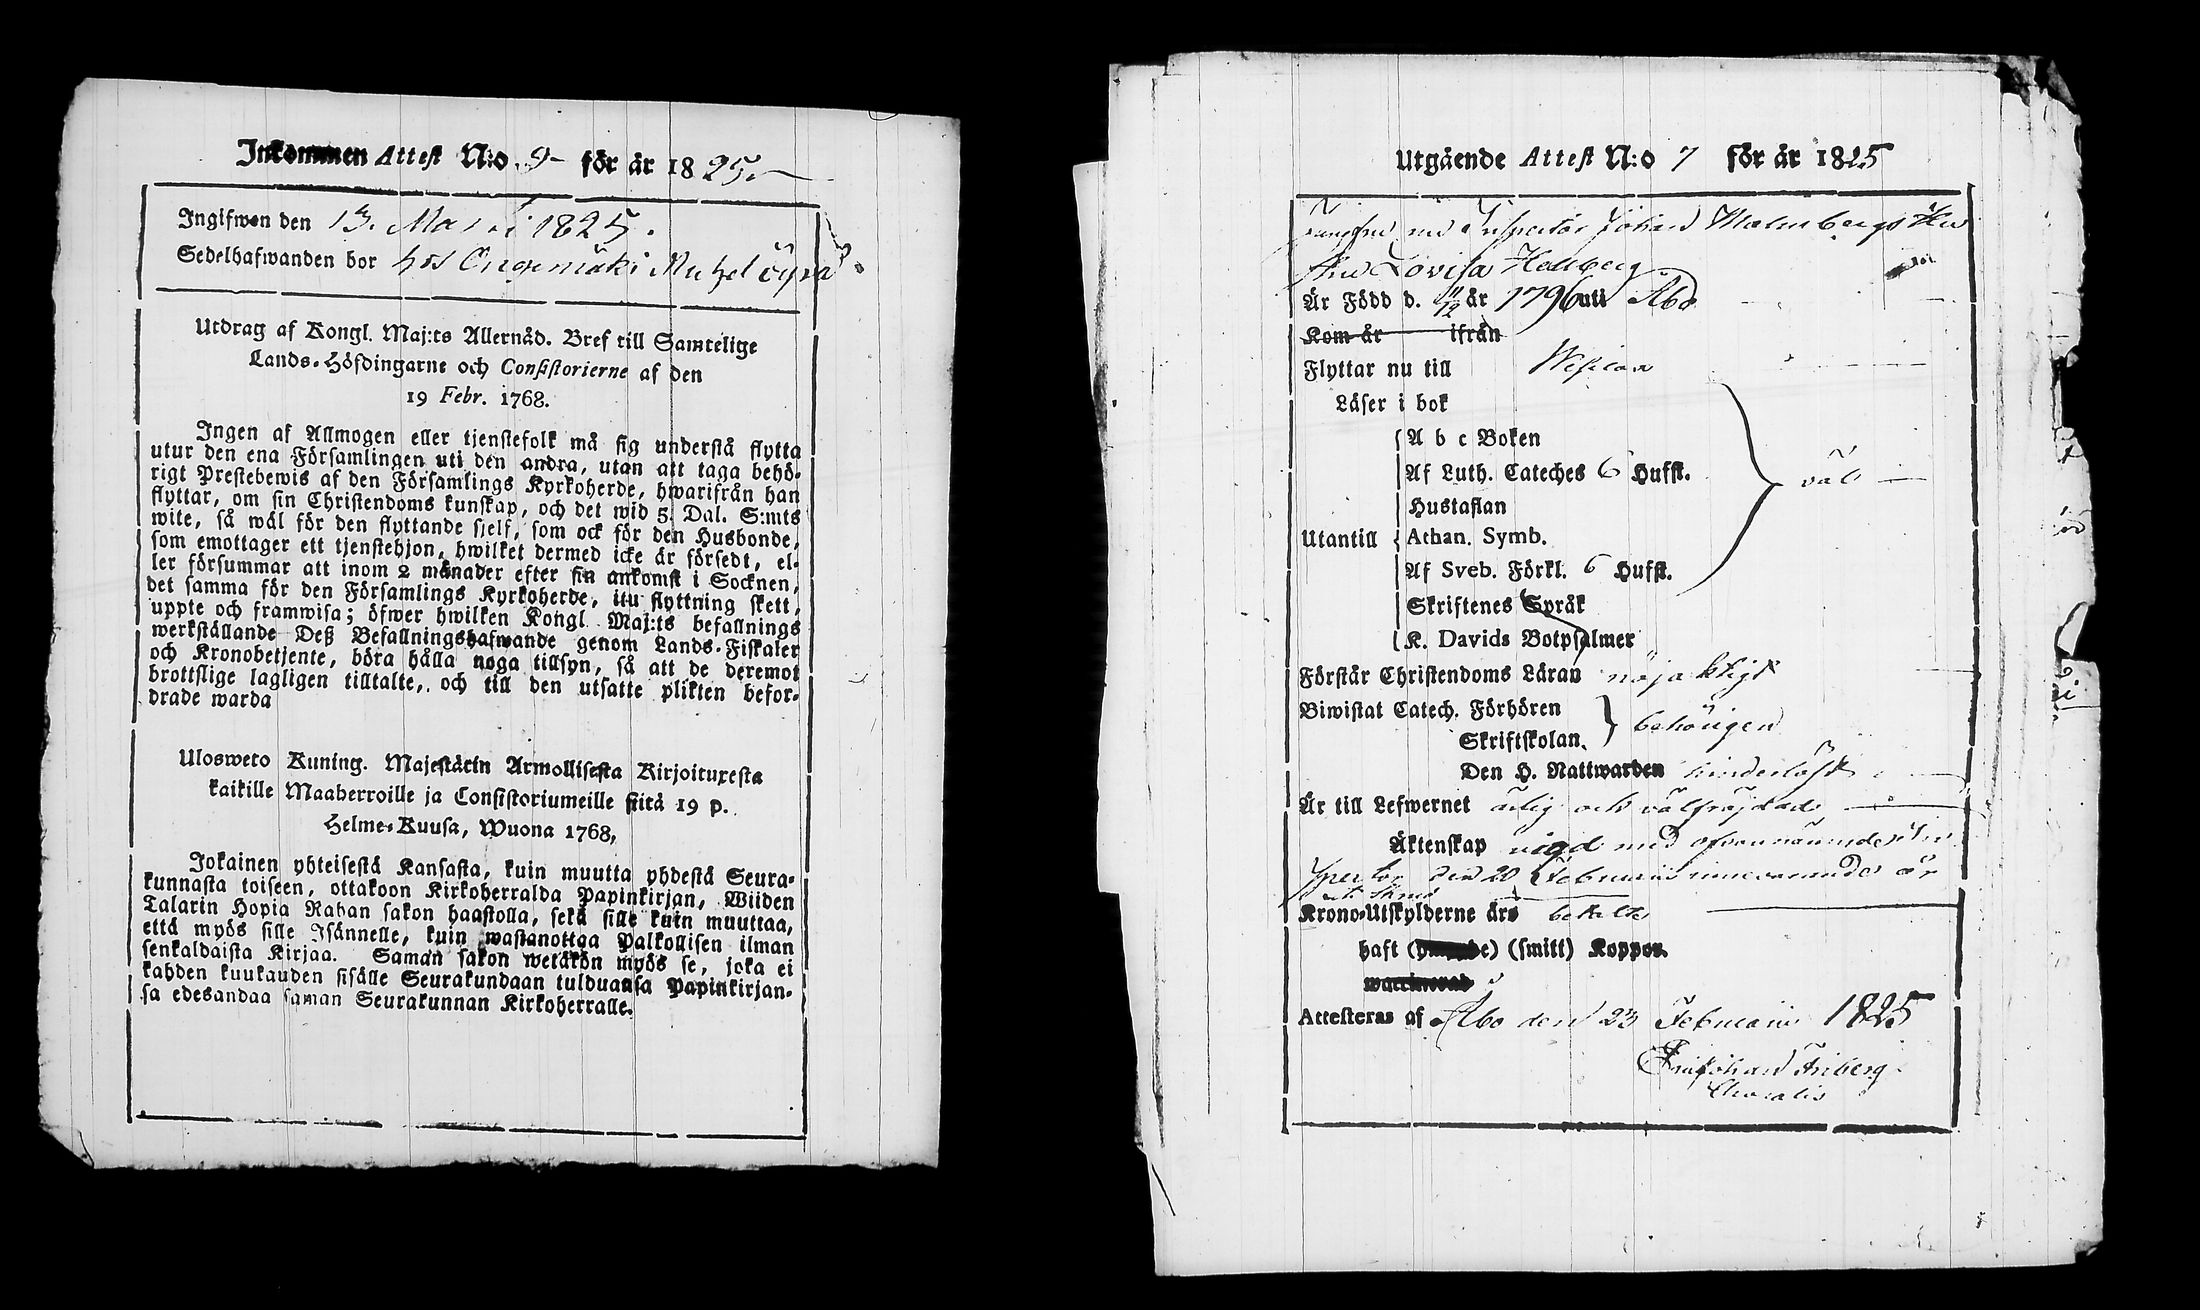 Inkommen Attest N:o 9 för år 1825
Ingifwen den 13. Martii 1825.
Sedelhafwanden bor hos
Utdrag af Kongl. Maj:ts Allernåd. Bref till Samtelige
Lands-Höfdingarne och Consistorierne af den
19 Febr. 1768.
Ingen af Allmogen eller tjenstefolk må sig understå flytta
utur den ena Församlingen uti den andra, utan att taga behö-
rigt Prestebewis af den Församlings Kyrkoherde, hwarifrån han
flyttar, om sin Christendoms kunskap, och det wid 5. Dal. S:mts
wite, så wäl för den flyttande sjelf, som ock för den Husbonde,
som emottager ett tjenstehjon, hwilket dermed icke är försedt, el-
ler försummar att inom 2 månader efter sin ankomst i Socknen,
det samma för den Församlings Kyrkoherde, itu flyttning skett,
uppte och framwisa; öfwer hwilken Kongl. Maj:ts befallnings
werkställande Deß Befallningshafwande genom Lands-Fiskaler
och Kronobetjente, böra hålla noga tillsyn, så att de deremot
brottslige lagligen tilltalte, och till den utsatte plikten befor-
drade warda
Ulosweto Kuning. Majestätin Armollisesta Kirjoituxesta
kaikille Maaherroille ja Consistoriumeille siitä 19 p.
Helme-Kuusa, Wuona 1768,
Jokainen yhteisestä Kansasta, kuin muutta yhdestä Seura-
kunnasta toiseen, ottakoon Kirkoherralda Papinkirjan, Wiiden
Talarin Hopia Rahan sakon haastolla, sekä sille kuin muuttaa,
että myös sille Isännelle, kuin wastanottaa Palkollisen ilman
senkaldaista Kirjaa. Saman sakon wetäkön myös se, joka ei
kahden kuukauden sisälle Seurakundaan tulduansa Papinkirjan-
sa edesandaa saman Seurakunnan Kirkoherralle.
Utgående Attest N:o 7 för år 1825
Inspector Johan Malmbergs Hu
stru Lovisa Hellberg
Är Född d. 11/12 år 1796 uti Åbo
Kom år ifrån
Flyttar nu till
Läser i bok
A b c Boken
Af Luth. Cateches 6 Hufst. väl
Hustaflan
Utantill Athan. Symb.
Af Sveb. Förkl. 6 Hufst.
Skriftenes Språk
K. Davids Botpsalmer
Förstår Christendoms Läran nöjaktigt
Biwistat Catech. Förhören behörigen
Skriftskolan.
Den H. Nattwarden hinderlöst
Är till Lefwernet ärlig och välfrejdad
Äktenskap vigd med ofvannämnde In
spector den 20 Februarii innevarande år
Krono-Utskylderne äro betalte
haft (smitt) Koppor.
Attesteras af Åbo den 23 Februarii 1825
Friberg